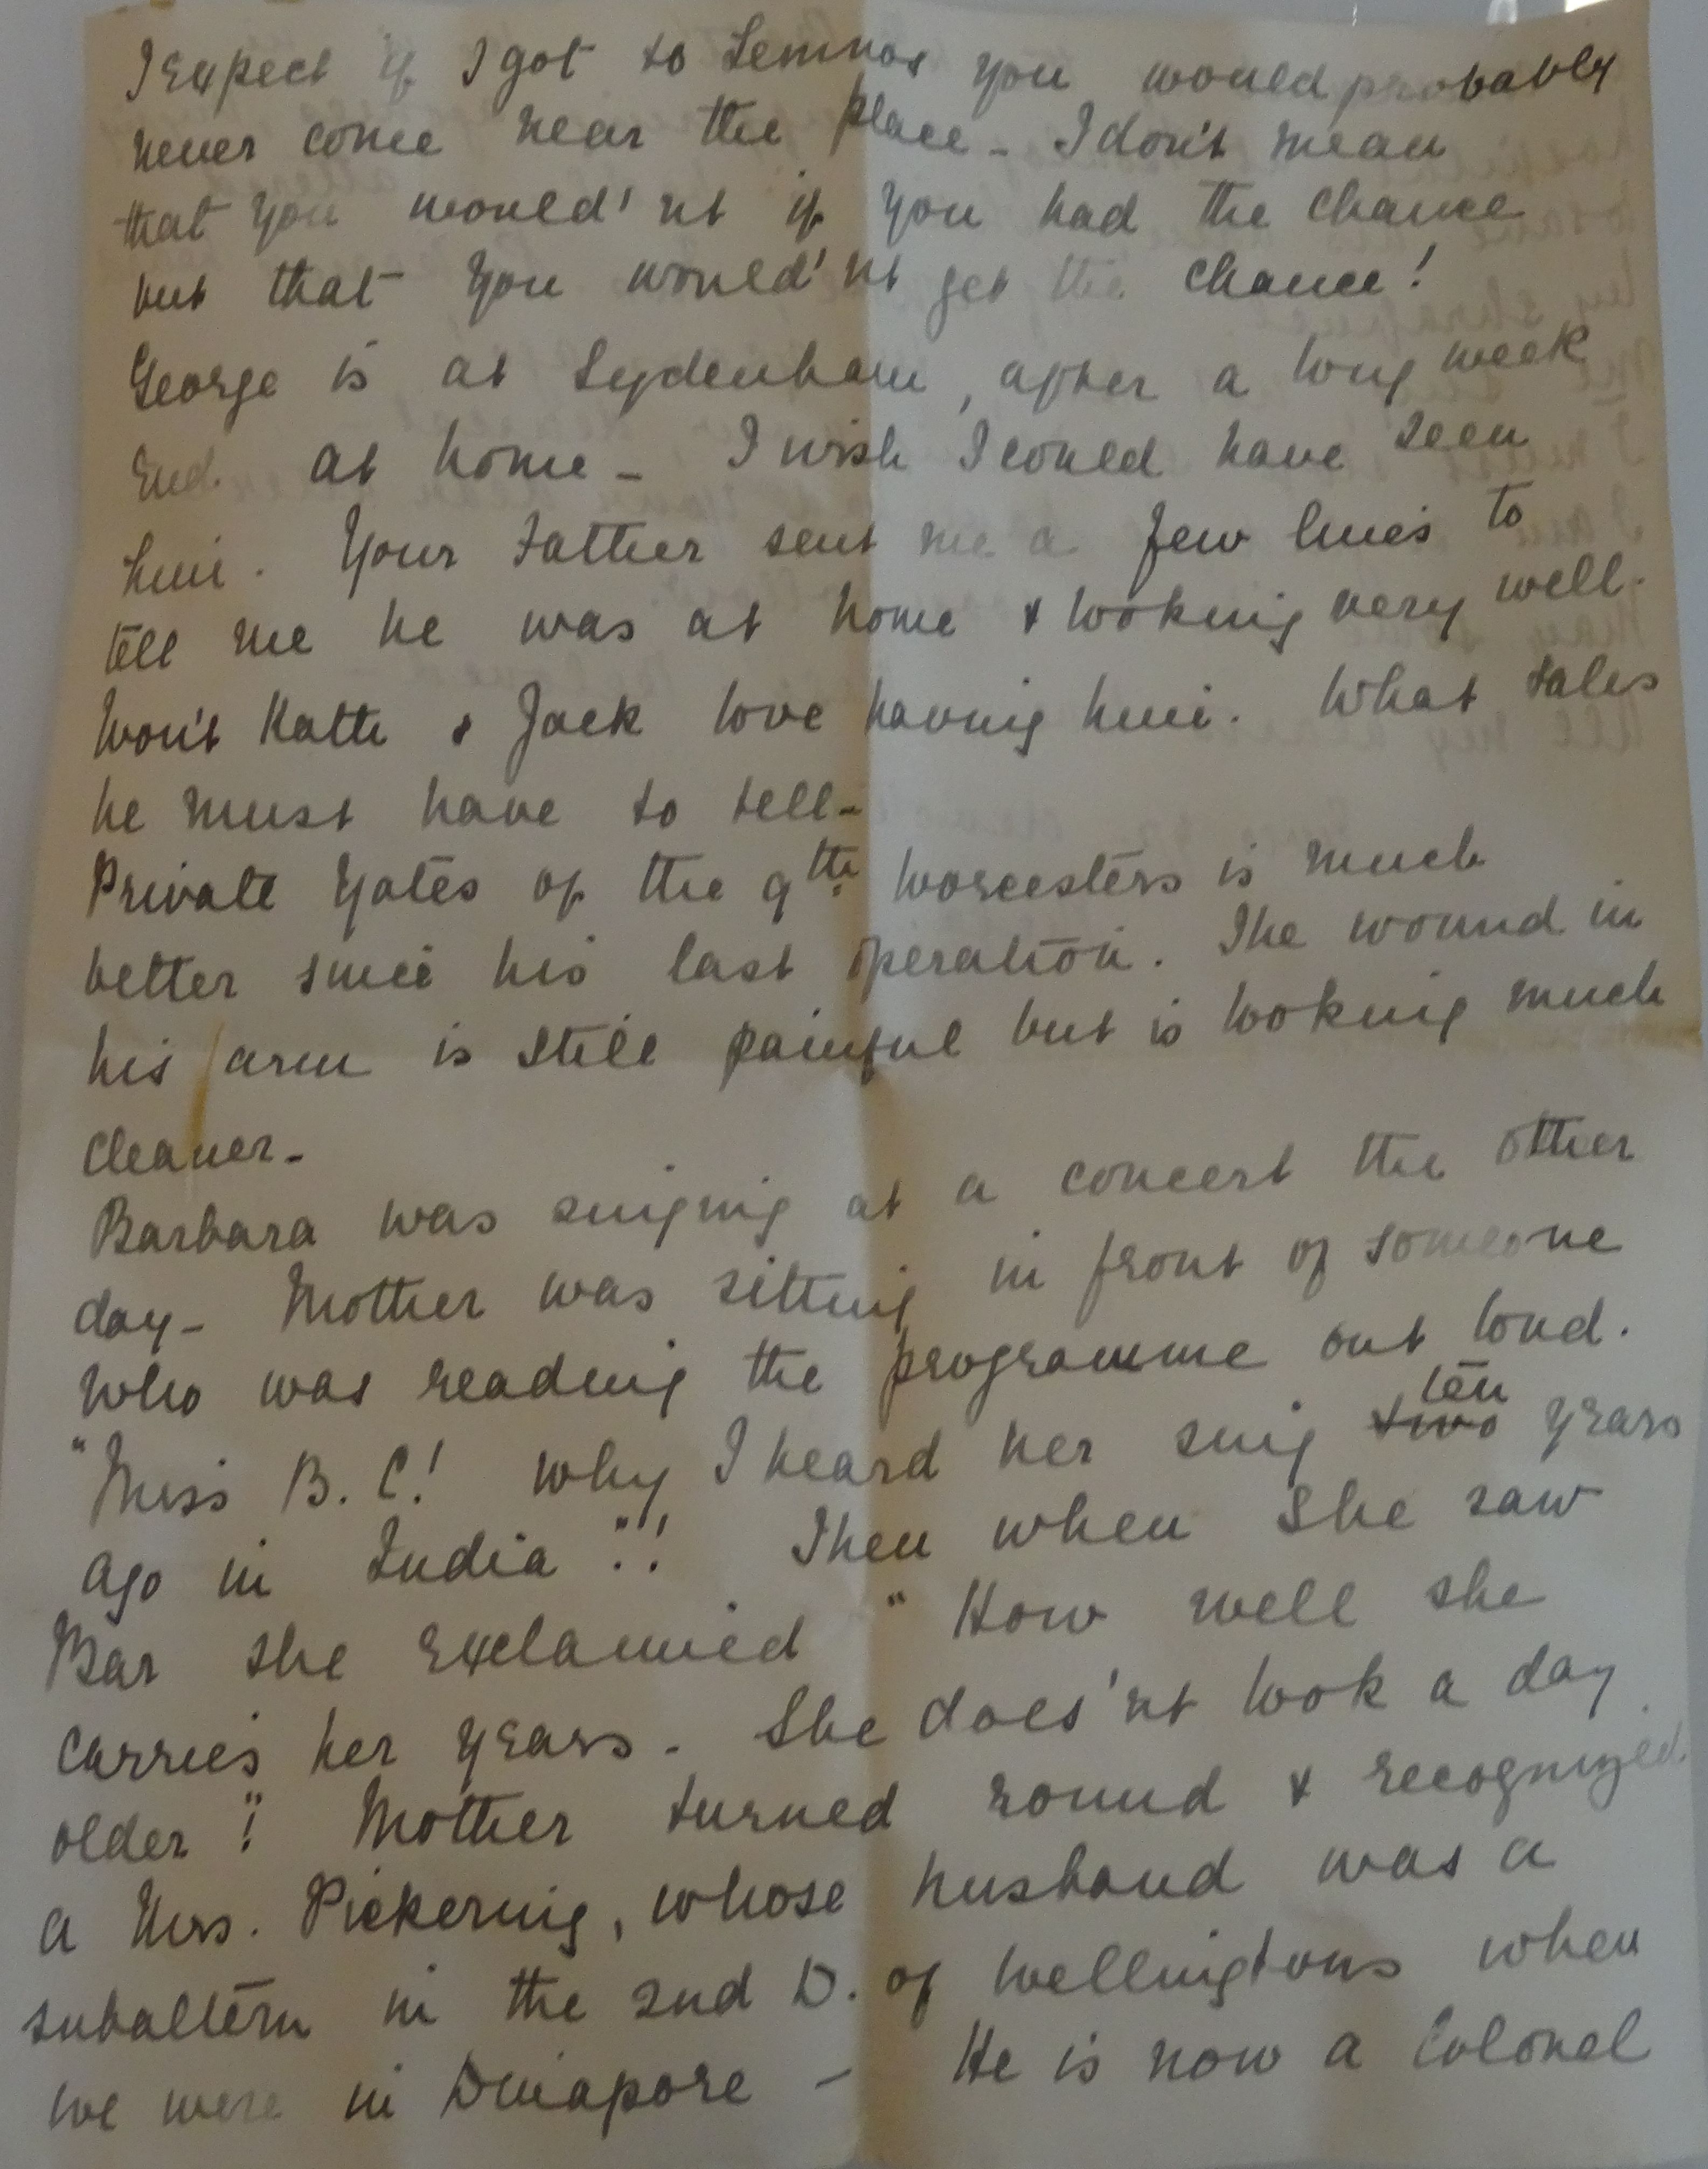 I expect if I got to Lemnos you would probably
never come near the place - I don't mean
that you would'nt if you had the chance
but that you would'nt get the chance!
George is at Sydenham, after a long week
end. at home - I wish I could have seen
him. Your Father sent me a few lines to
tell me he was at home & looking very well.
Won't Katti & Jack love having him. What tales
he must have to tell -
Private Yates of the 9th Worcesters is much
better since his last operation. The wound in
his arm is still painful but is looking much
cleaner -
Barbara was singing at a concert the other
day - Mother was sitting in front of someone
who was reading the programme out loud.
"Miss B. C! why I heard her sing two ten years
ago in India"!! Then when she saw
Bar she exclaimed "How well she
carries her years - She does'nt look a day
older"! Mother turned round & recognized
a Mrs. Pickering, whose husband was a
subaltern in the 2nd D. of Wellingtons when
we were in Dinapore - He is now a Colonel